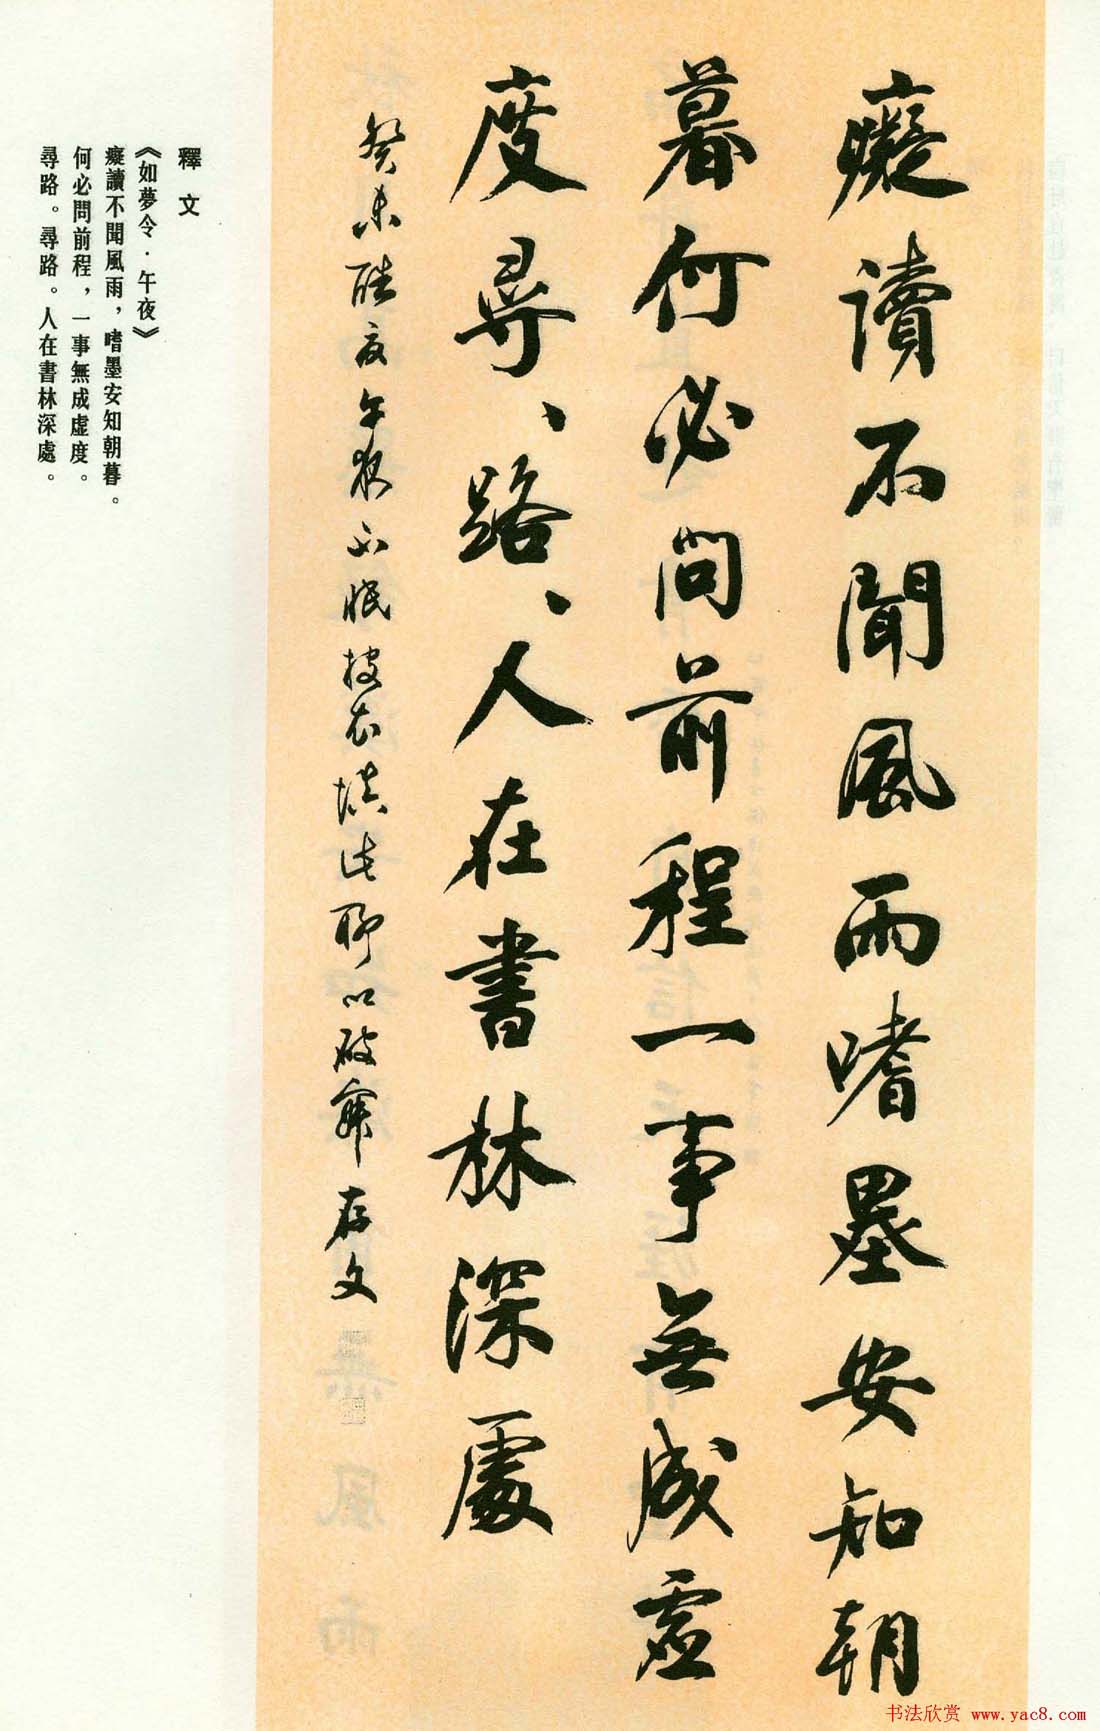 癡讀不聞風雨嗜墨安知朝
暮何必問前程一事無成虛
度尋、路、人在書林深處
癸未酷夏午夜不眠披衣填此聊以破寂存文
釋文
《如夢令·午夜》
癡讀不聞風雨，嗜墨安知朝暮。
何必問前程，一事無成虛度。
尋路。尋路。人在書林深處。
书法欣赏 www.yac8.com